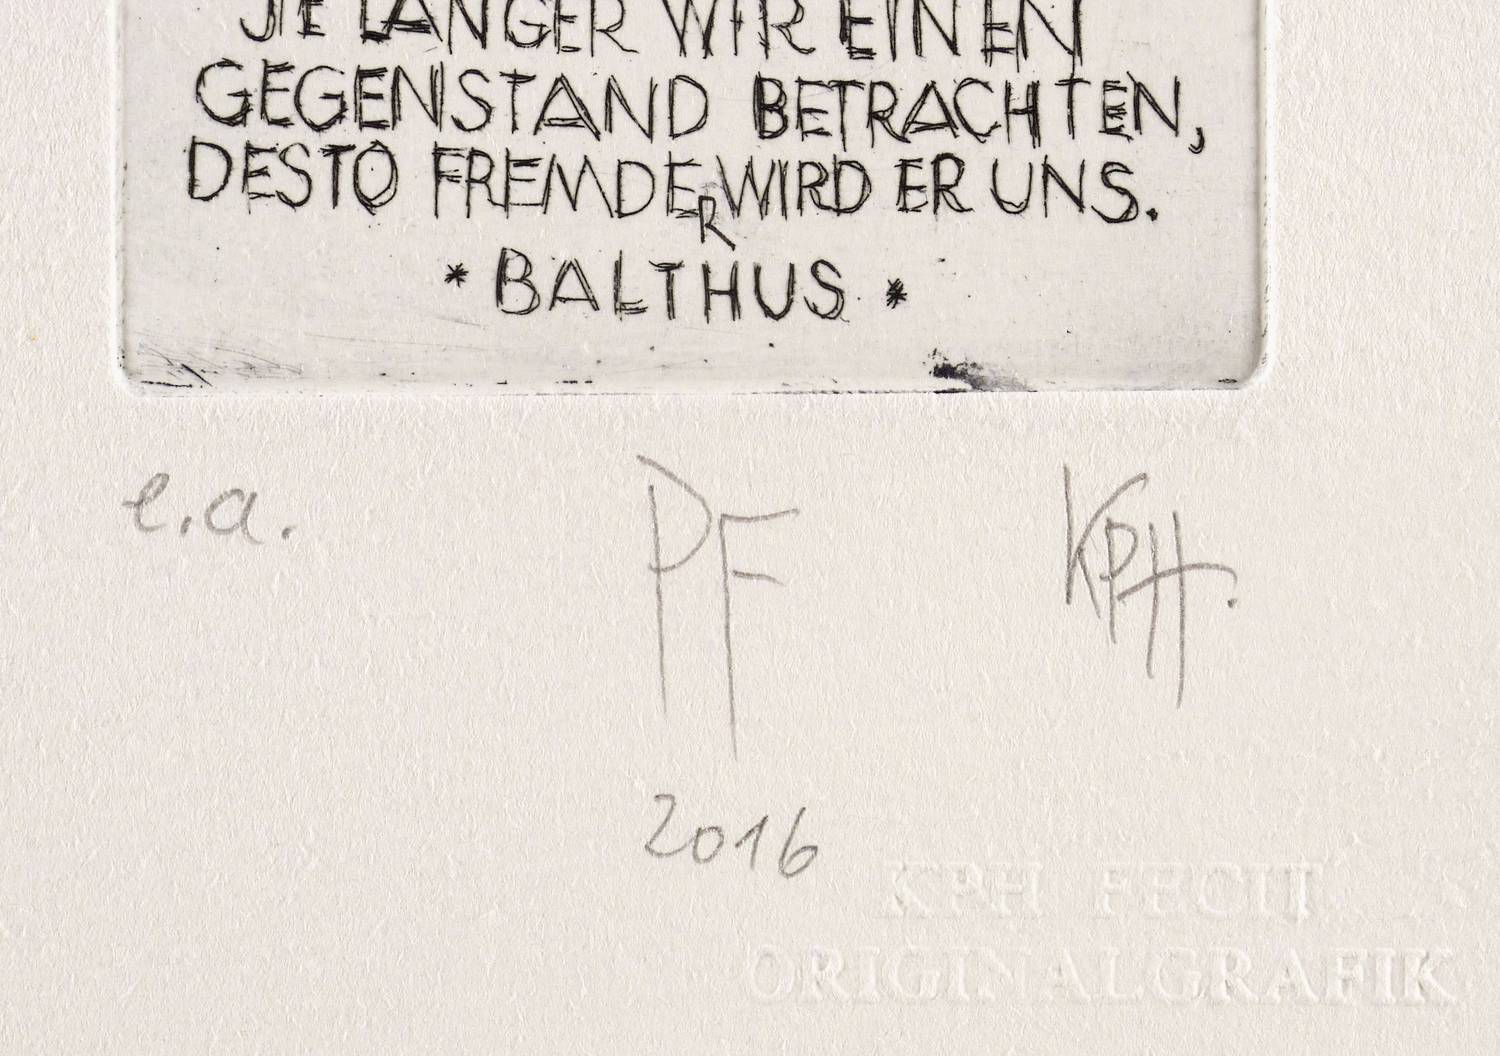 JE LÄNGER WIR EINEN
GEGENSTAND BETRACHTEN,
DESTO FREMDER WIRD ER UNS.
* BALTHUS *
e.a. PF KPH.
2016
KPH FECIT
ORIGINALGRAFIK